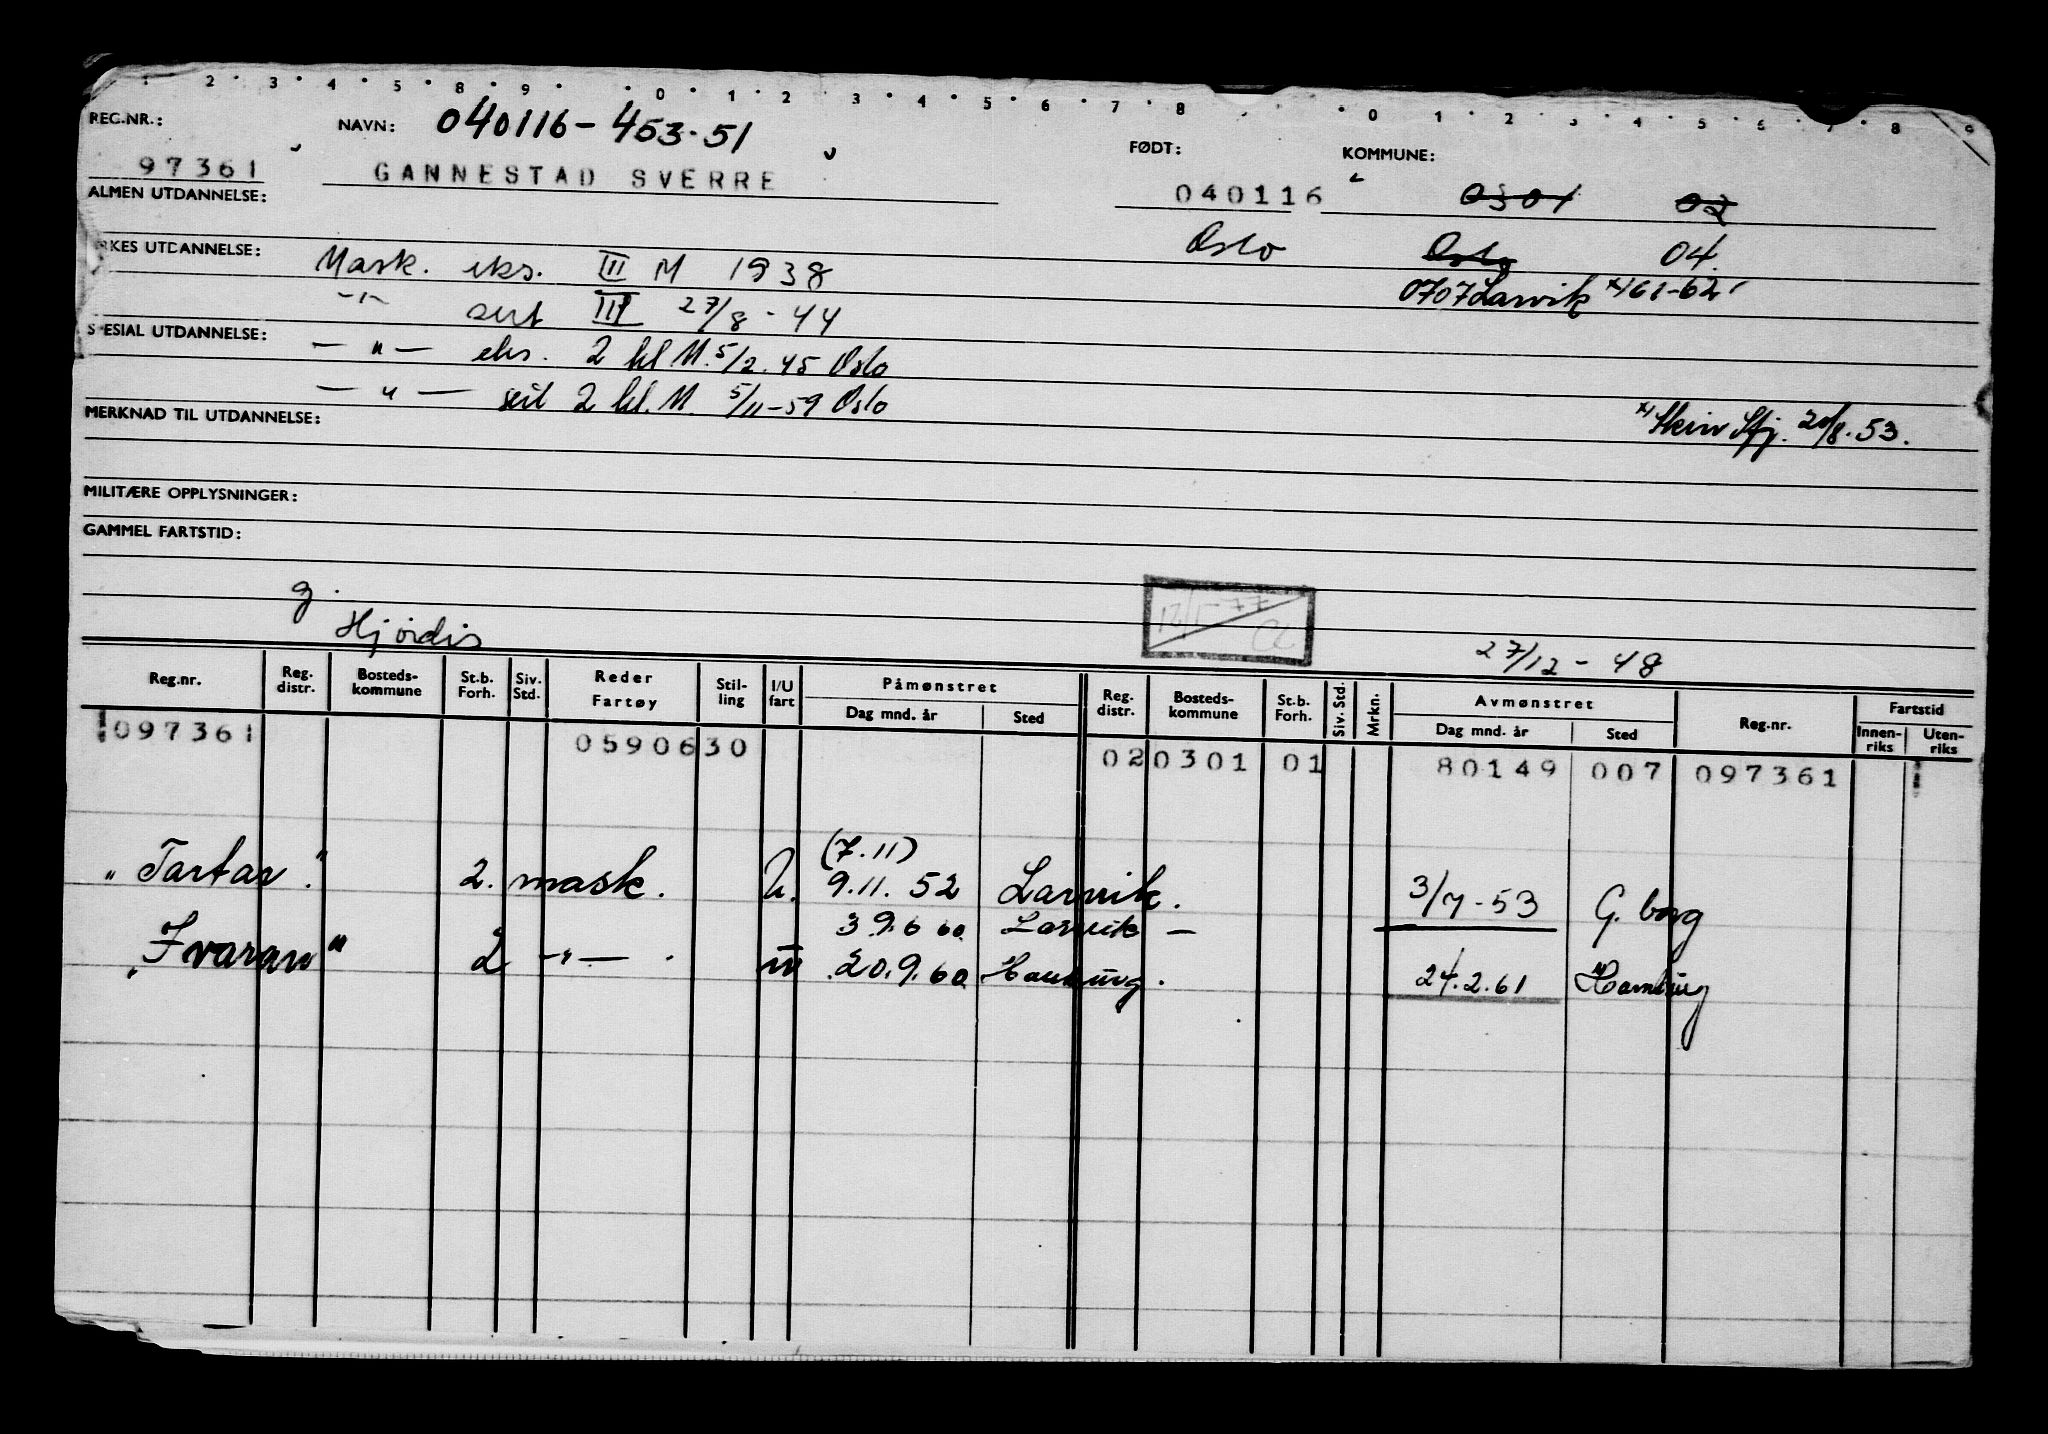 1 2 3 4 5 8 9 0 1 2 3 4 5 6 7 8 0 1 2 3 4 5 6 7 8 9
REG.NR.: NAVN: 040116-453-51 FØDT: KOMMUNE:
97361 GANNESTAD SVERRE 040116 0301 02
ALMEN UTDANNELSE:
Oslo Oslo 04.
RKES UTDANNELSE: Mask. eks. III M 1938
0707 Larvik x) 61-62
-"- sert III 27/8-44
SPESIAL UTDANNELSE: -"- eks. 2 kl M. 5/2.45 Oslo
-"- sert 2 kl. M. 5/11-59 Oslo
MERKNAD TIL UTDANNELSE: x) Skriv Sfj. 20/8.53.
MILITÆRE OPPLYSNINGER:
GAMMEL FARTSTID:
g.
12/1-77
Hjørdis 27/12-48
Reg.nr. Reg. distr. Bosteds-kommune St.b. Forh. Siv. Std. Reder Fartøy Stil-ling I/U fart Påmønstret Dag mnd. år Sted Reg. distr. Bosteds-kommune St.b. Forh. Siv. Std. Mrkn. Avmønstret Dag mnd. år Sted Reg.nr. Fartstid Innen-riks Uten-riks
097361 0590630 02 0301 01 80149 007 097361
(7.11)
"Tartar". 2. mask. U. 9.11.52 Larvik. 3/7-53 G.borg
39.6 60 Larvik -
"Ivaran" 2 -"- . 20.9.60 Hamburg. 24.2.61 Hamburg